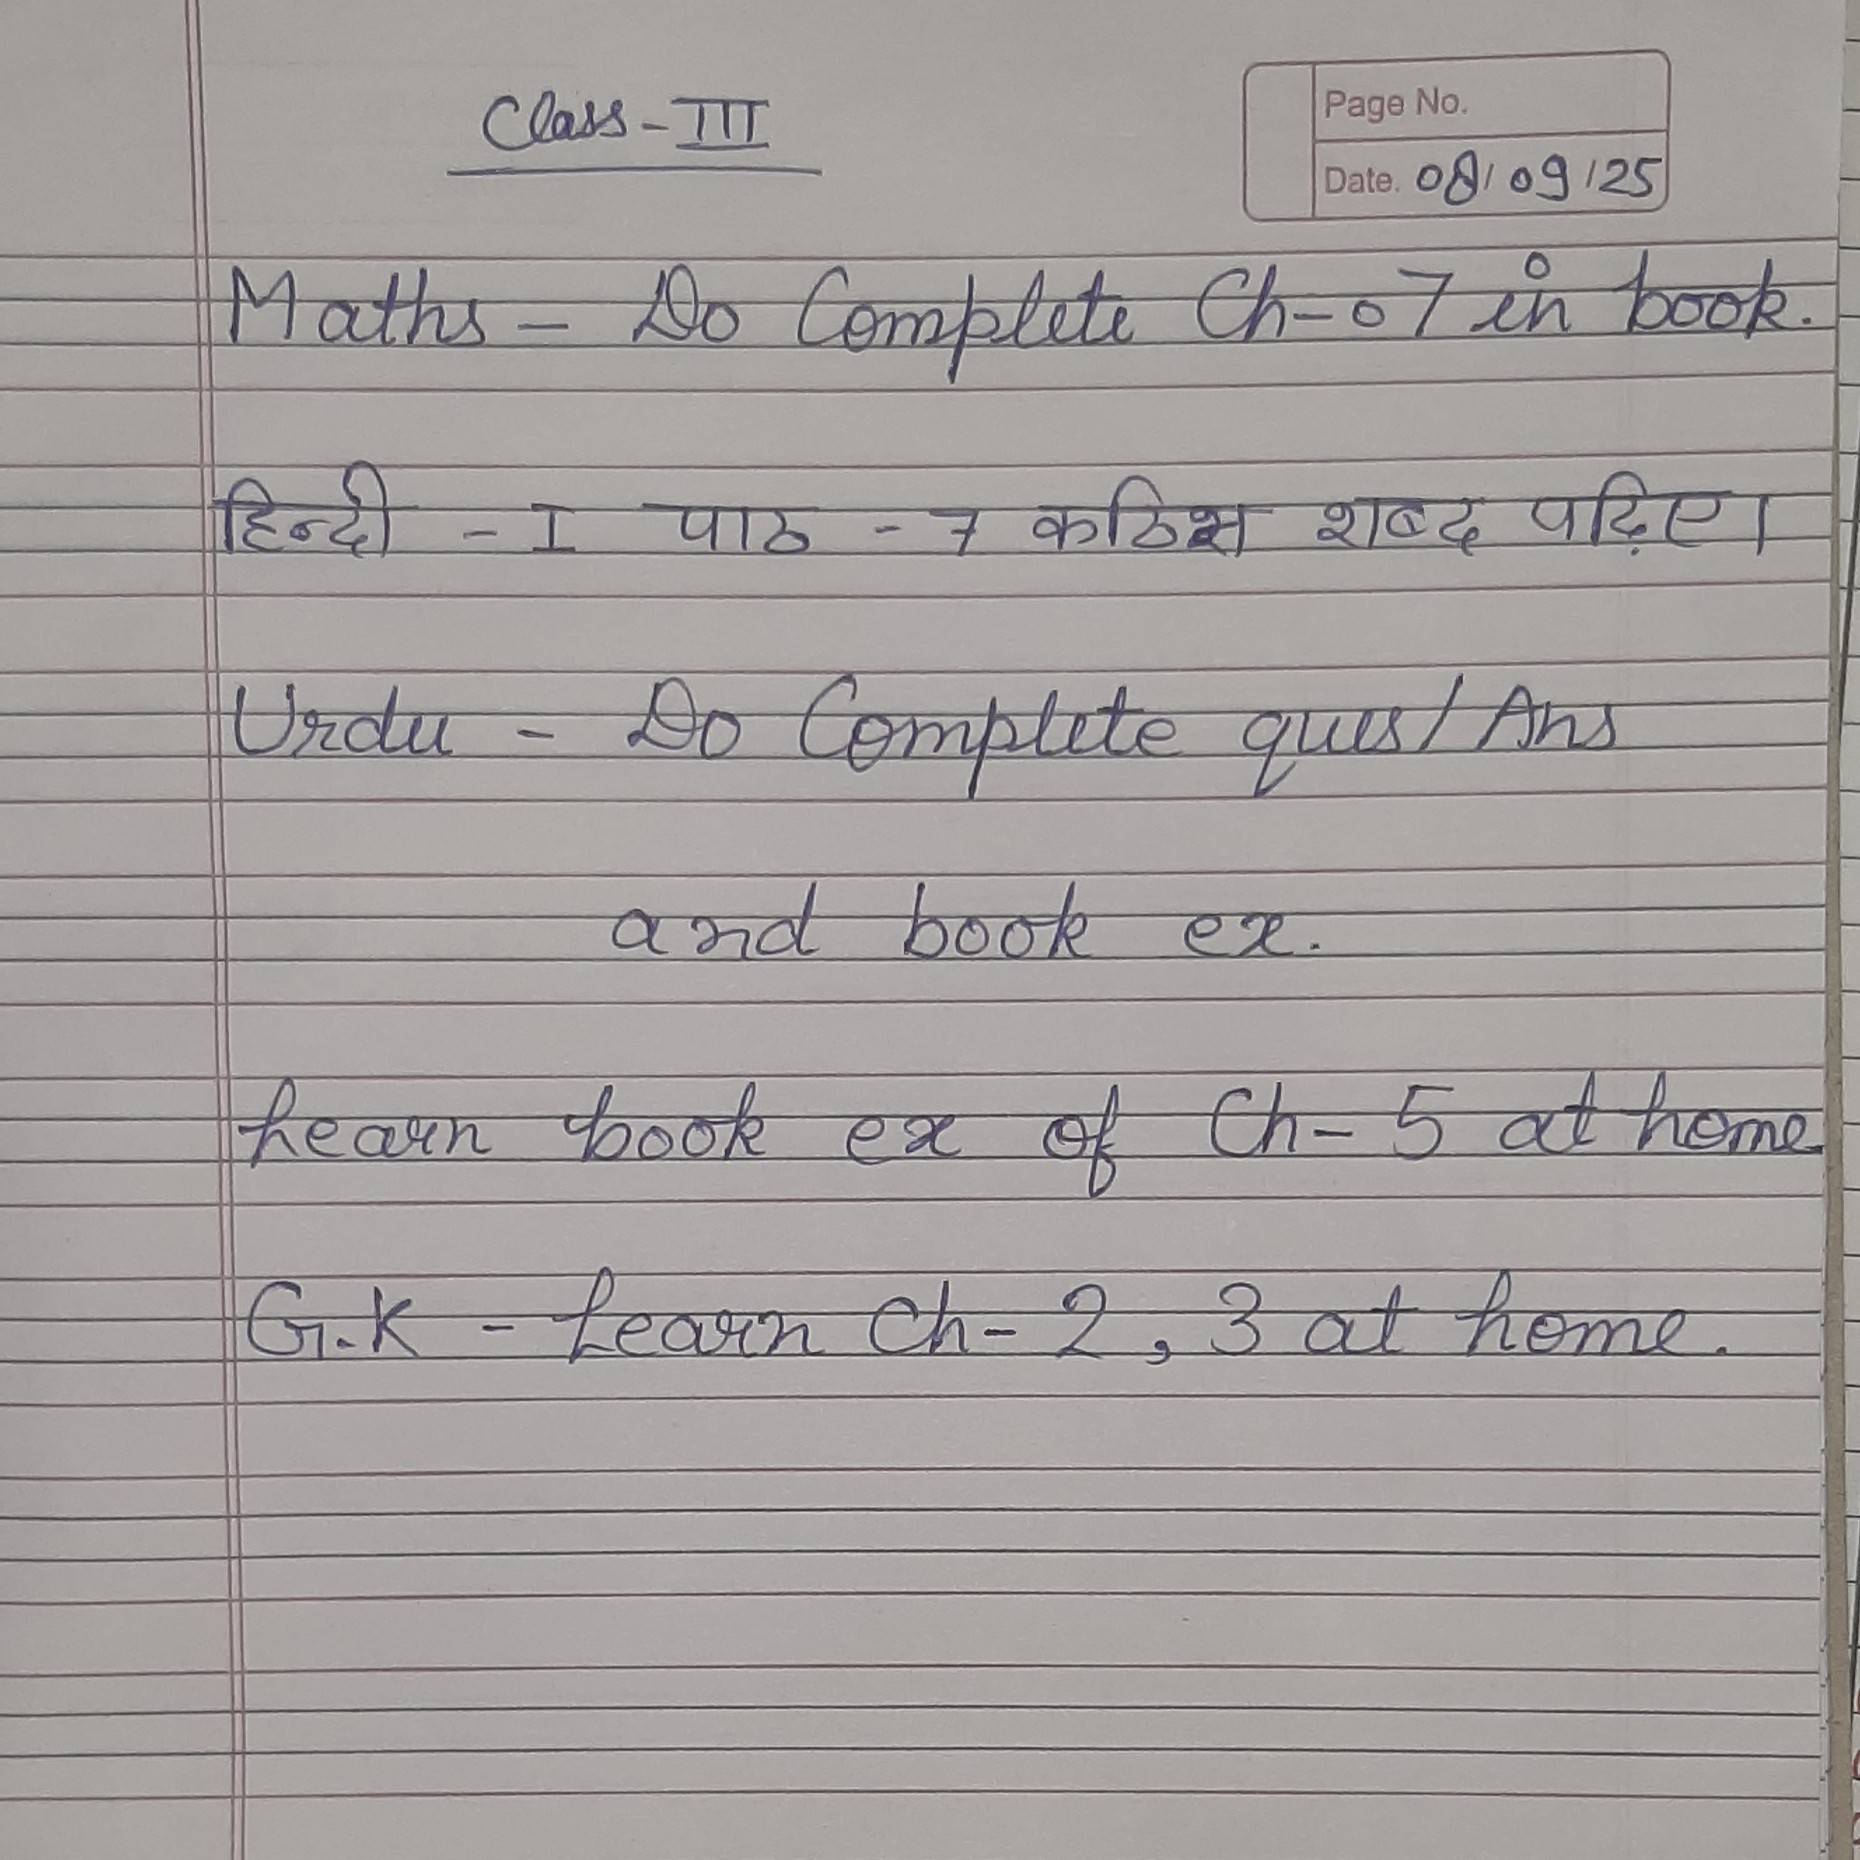 Class-III
Page No.
Date. 08/09/25
Maths - Do Complete Ch-07 in book.
हिन्दी - I पाठ - 7 कठिन शब्द पढ़िए।
Urdu - Do Complete ques/Ans
and book ex.
Learn book ex of Ch- 5 at home
G.K - Learn Ch- 2, 3 at home.